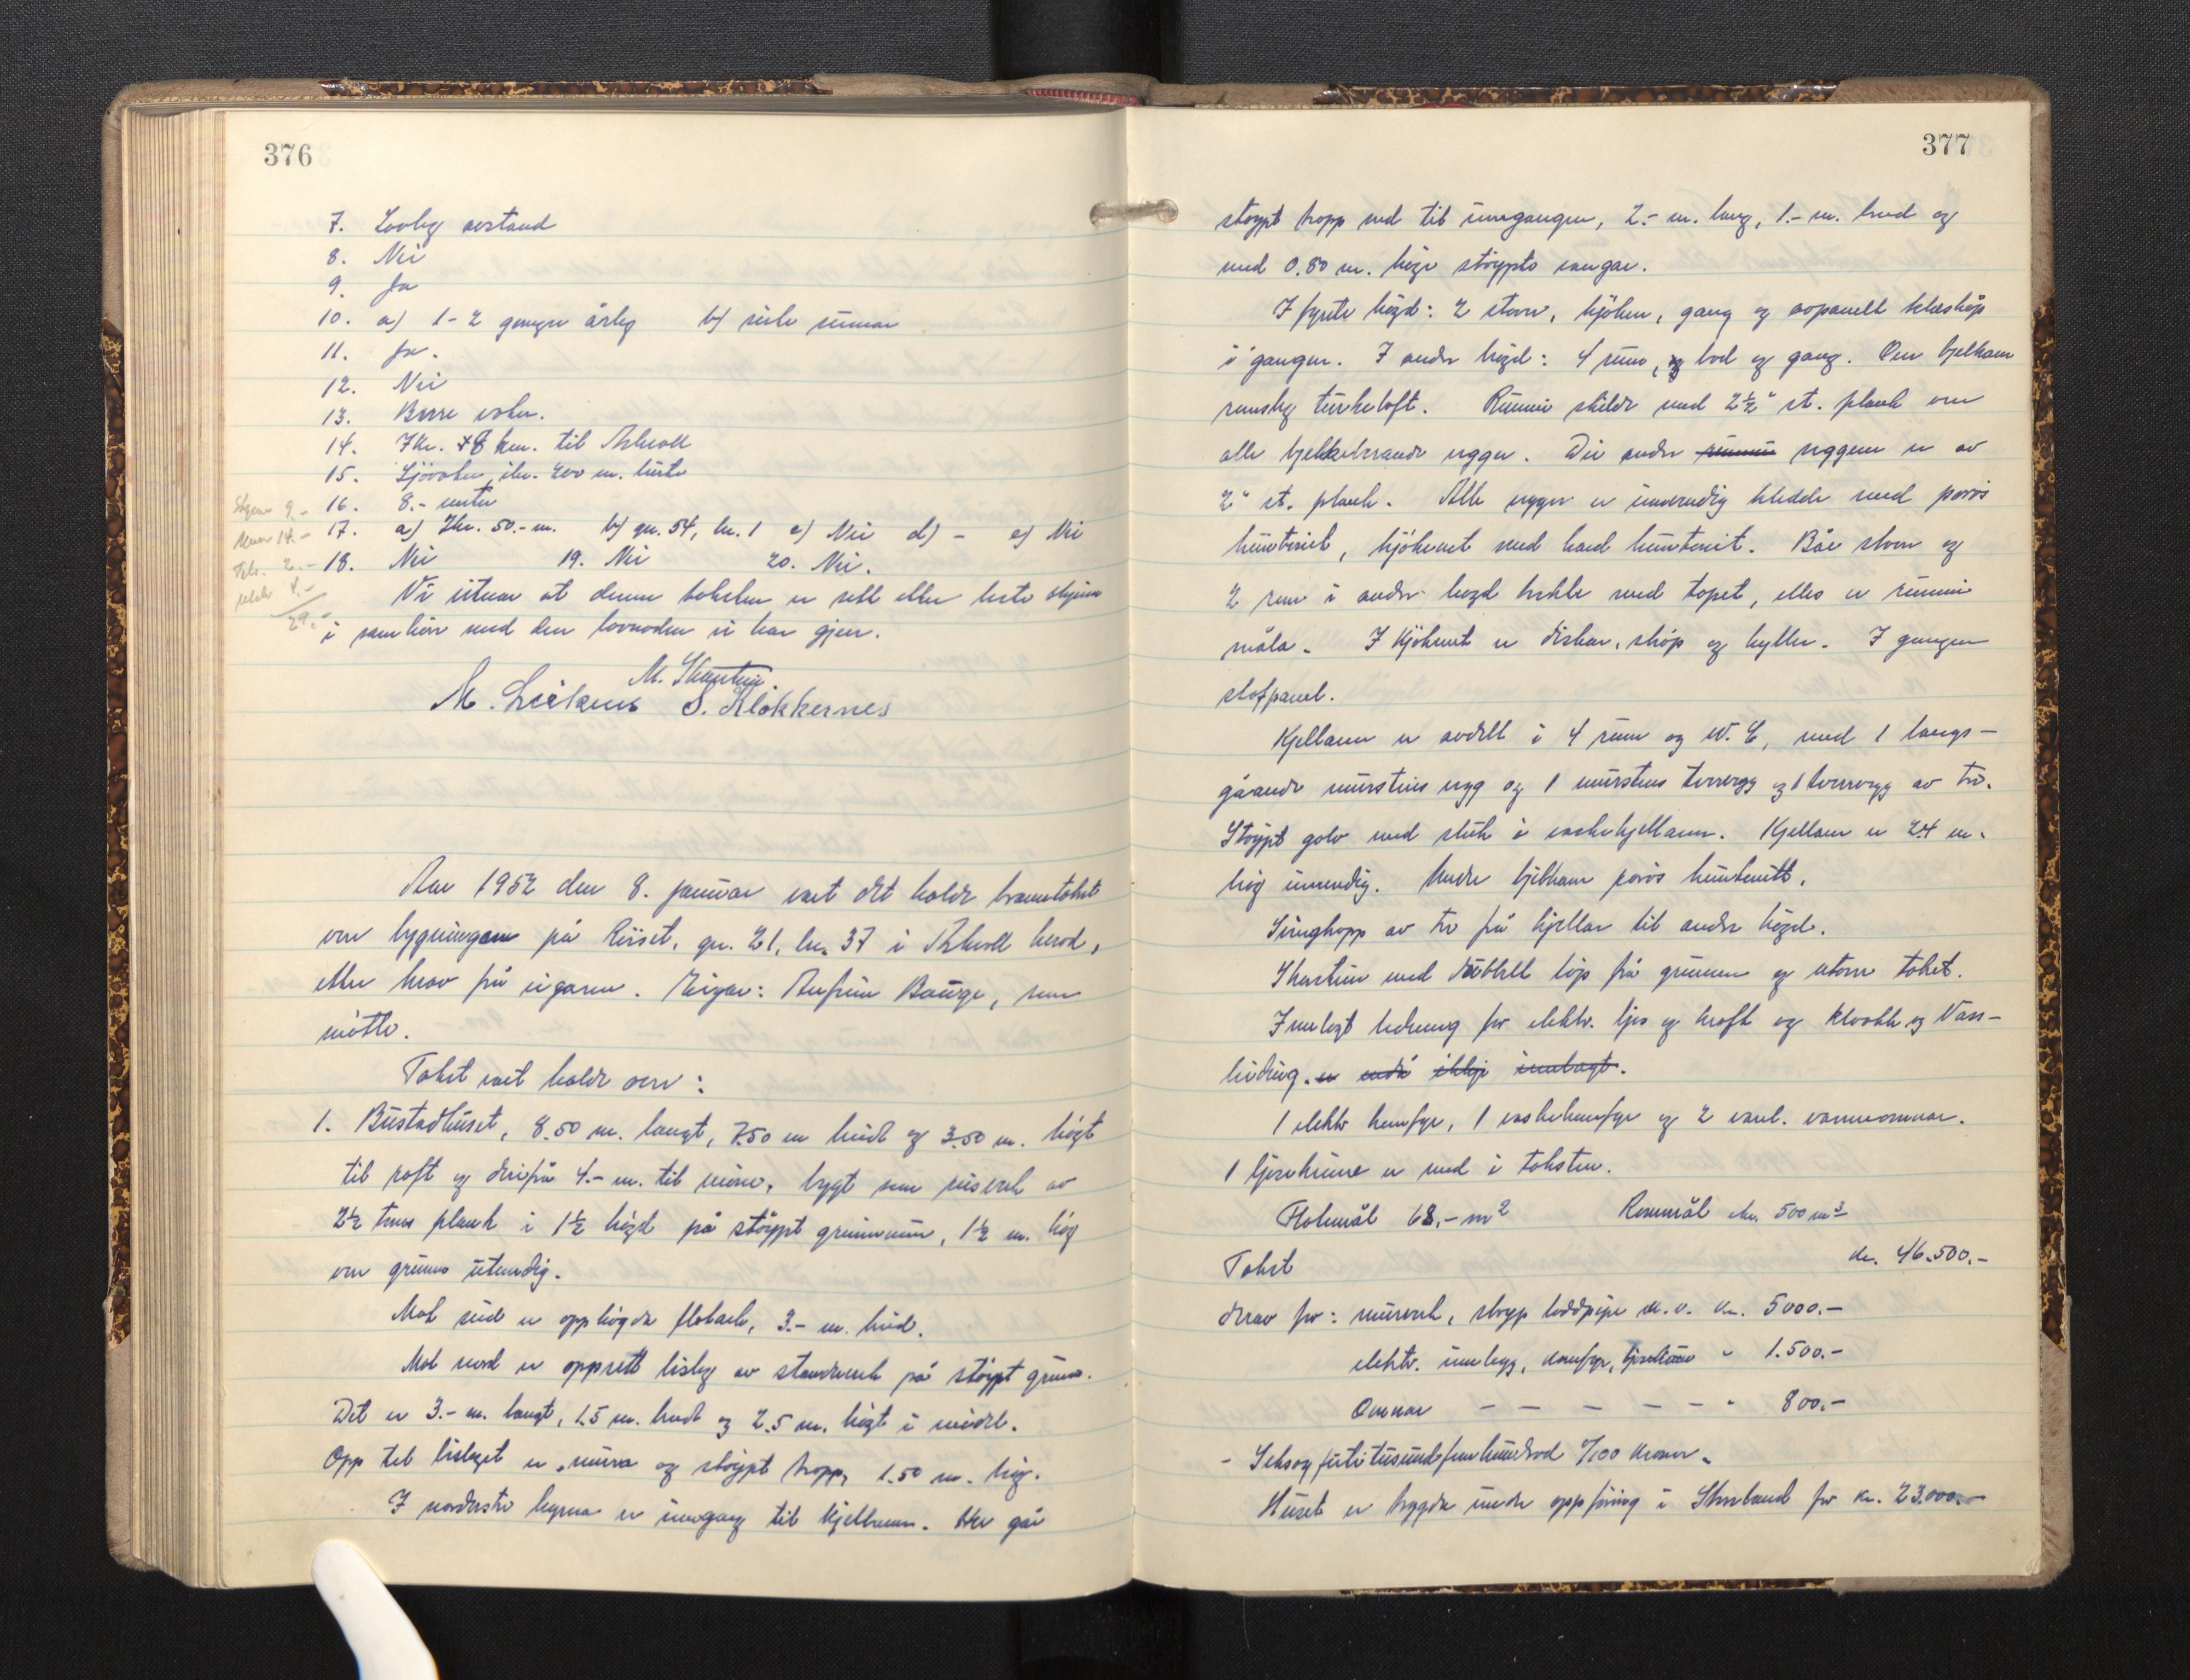 376
7. Lovleg avstand
8. Nei
9. Ja
10. a) 1-2 gonger årleg b) seile sumar
11. Ja.
12. Nei
13. Berre vatn.
14. Ikr. 8 km. til Askvoll
15. Sjøvatn, ikr. 200 m. burte
Skyss 9.- 16. 8.- meter
14.- 17. a) Ikr. 50.- m. b) gn. 54, bn. 1 c) Nei d) - e) Nei
Tils. 2.- 18. Nei 19. Nei 20. Nei.
4.- Vi vitnar at denne taksten er sett etter beste skjøn
29.- i samhøve med den lovnaden vi har gjeve.
M.
M. S. Klokkernes
Aar 1952 den 8. januar vart det halde branntakst
over bygningane på Riiset, gn. 21, bn. 37 i Askvoll herad,
etter krav frå eigaren. Eigar: Anfinn Bauge, som
møtte.
Takst vart halde over:
1. Bustadhuset, 8.50 m. langt, 7.50 m breidt og 3.50 m. høgt
til raft og derifrå 4.- m. til møne, bygt som reisverk av
2½ toms plank i 1½ høgd på støypt grunnmur, 1½ m. høg
over grunnen utvendig.
Mot sud er opphøgde flataark, 3.- m. breid.
Mot nord er oppsett bislag av standverk på støypt grunn.
Det er 3.- m. langt, 1.5 m. bredt og 2.5 m. høgt i midle.
Opp til bislaget er mura og støypt trapp, 1.50 m. høg.
I nordvestre hyrna er inngang til kjellaren. Her går
377
støypt trapp ned til inngangen, 2.- m. lang, 1.- m. bred og
med 0.80 m. høge støypte vangar.
I fyrste høgd: 2 stover, kjøken, gang og avpanelt kleskåp
i gangen. I andre høgd: 4 rum, og bod og gang. Over bjelkane
romsleg turkeloft. Rumi skilde med 2½" st. plank over
alle bjelkeberande veggar. Dei andre rummi veggane er av
2" st. plank. Alle vegger er innvendig kledde med porøs
huntonit, kjøkenet med hard huntonit. Båe stover og
2 rom i andre høgd trekte med tapet, elles er rummi
måla. I kjøkenet er diskar, skåp og hyller. I gangen
stafpanel.
Kjellaren er avdelt i 4 rum og W.C, med 1 langs-
gåande mursteins vegg og 1 mursteins tverrvegg og 1 tverrvegg av tre.
Støypt golv med sluk i vaskekjellaren. Kjellaren er 2.4 m.
høg innvendig. Under bjelkane porøs huntonitt.
Svingtrapp av tre frå kjellar til andre høgd.
Skorstein med dubbelt løp frå grunnen og utover taket.
Innlagt ledning for elektr. ljos og kraft og kloakk og Vass-
leidning. er endå ikkje innlagt.
1 elektr komfyr, 1 vaskekomfyr og 2 vanl. varmeomnar.
1 ljosekrune er med i taksten.
Flatemål 68.- m² Rommål ikr. 500 m³
Takst kr. 46.500.-
derav for: murverk, støyp loddpipe m.v. kr. 5000.-
elektr. innlegg, komfyr, ljosekrune " 1.500.-
Omnar - - - - - - " 800.-
- Seksogførtitusundfemhundrad 0/100 kroner -
Huset er trygda under oppføring i Storebrand for kr. 23.000.-